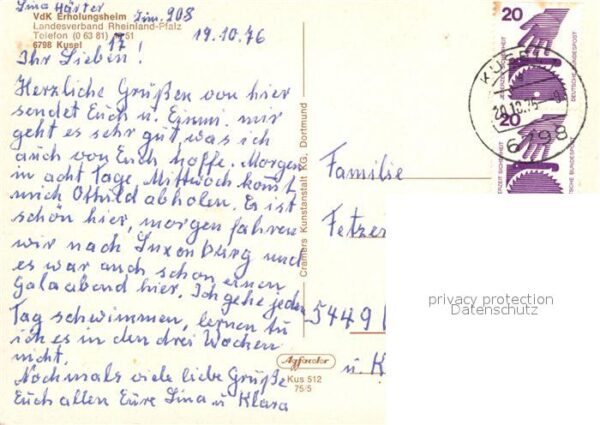 Lina Härter Zim. 908
VdK Erholungsheim
Landesverband Rheinland-Pfalz
Telefon (0 63 81) 51
6798 Kusel 17
19.10.76
Ihr Lieben!
Herzliche Grüßen von hier
sendet Euch u. mir
geht es sehr gut, was ich
auch von Euch hoffe. Morgen
in acht Tage, Mittwoch kommt
mich Othild abholen. Es ist
schön hier, morgen fahren
wir nach Luxenburg und
es war auch schon einen
Galaabend hier. Ich gehe jeden
Tag schwimmen, lernen tu
ich es in den drei Wochen
nicht.
Nochmals viele liebe Grüße
Euch allen Eure Lina u Klara
Cramers Kunstanstalt KG, Dortmund
Agfacolor
Kus 512
75/5
20
DEUTSCHE BUNDESPOST
20
KUSEL
20.10.76
6798
Familie
Fetzer
5449
u. K
privacy protection
Datenschutz